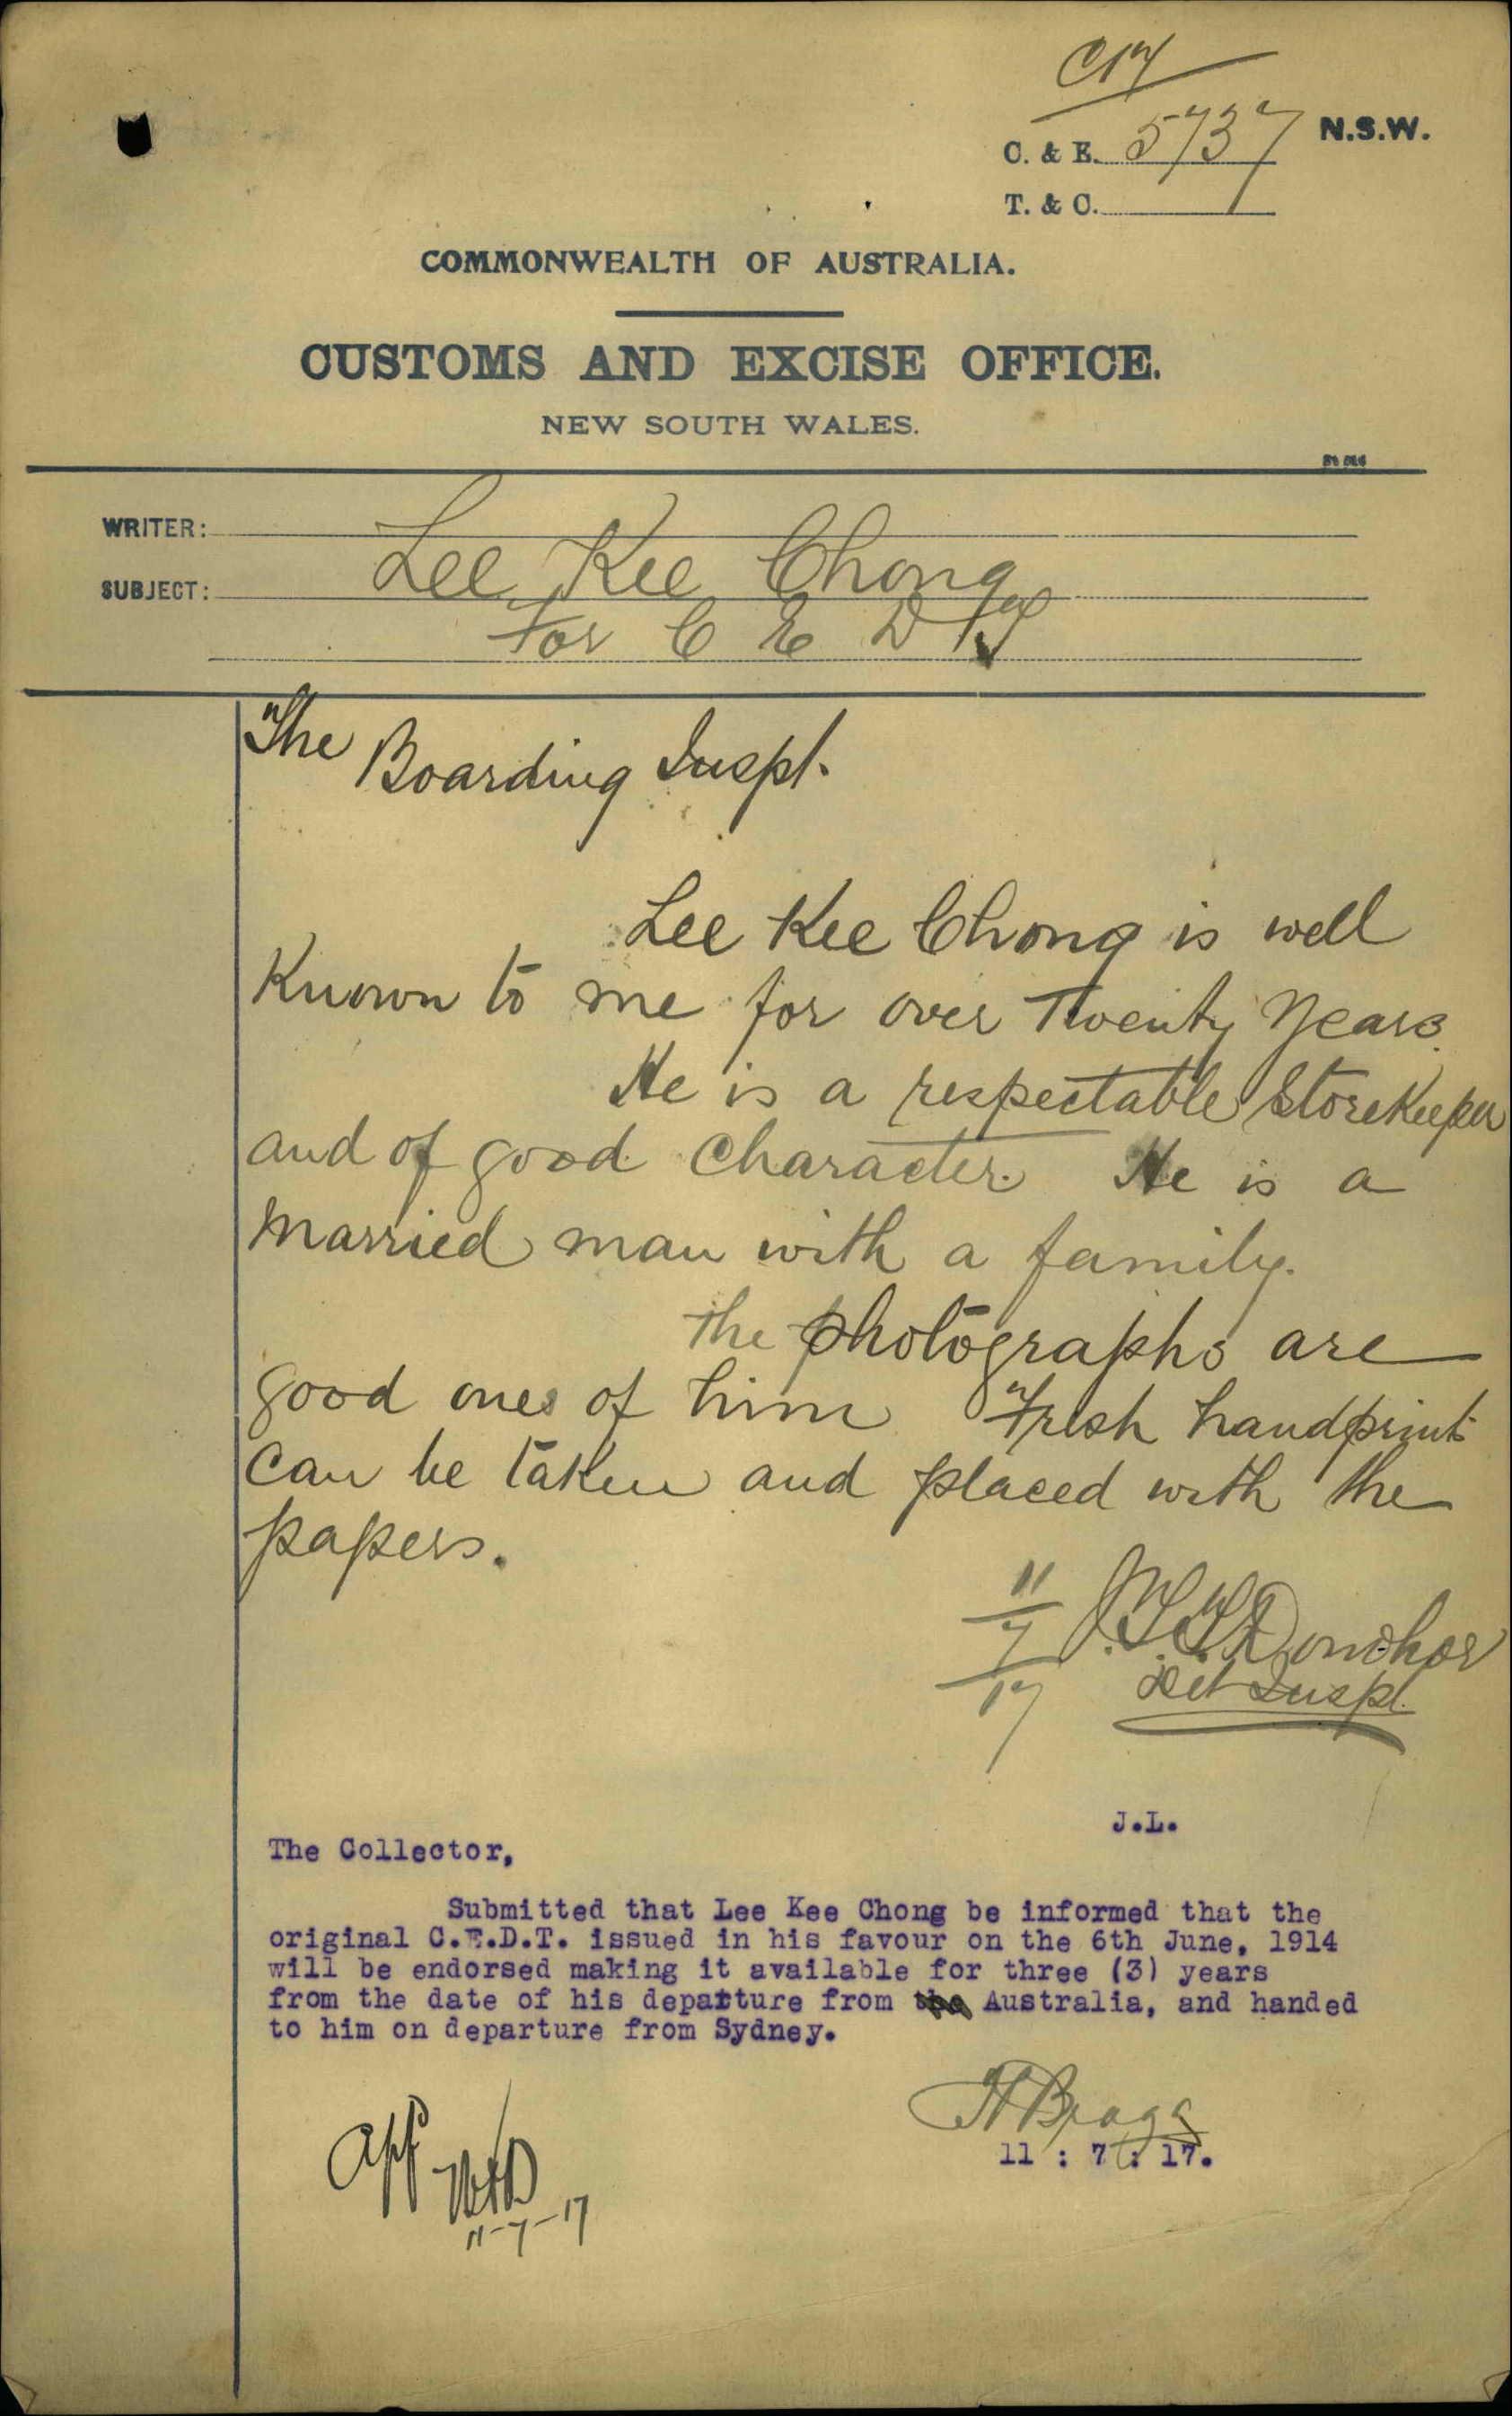 C17
C. & E. 5737 N.S.W.
T. & C.
COMMONWEALTH OF AUSTRALIA.
CUSTOMS AND EXCISE OFFICE.
NEW SOUTH WALES.
WRITER:
SUBJECT: Lee Kee Chong
For C E D T
The Boarding Inspt.
Lee Kee Chong is well
Known to me for over Twenty Years.
He is a respectable StoreKeeper
and of good Character. He is a
Married man with a family.
The photographs are
good ones of him Fresh handprints
can be taken and placed with the
papers.
11/7/17 J.T.T. Donohoe
Det Inspt.
J.L.
The Collector,
Submitted that Lee Kee Chong be informed that the
original C.E.D.T. issued in his favour on the 6th June, 1914
will be endorsed making it available for three (3) years
from the date of his departure from the Australia, and handed
to him on departure from Sydney.
H Bragg
11 : 7 : 17.
App
11-7-17